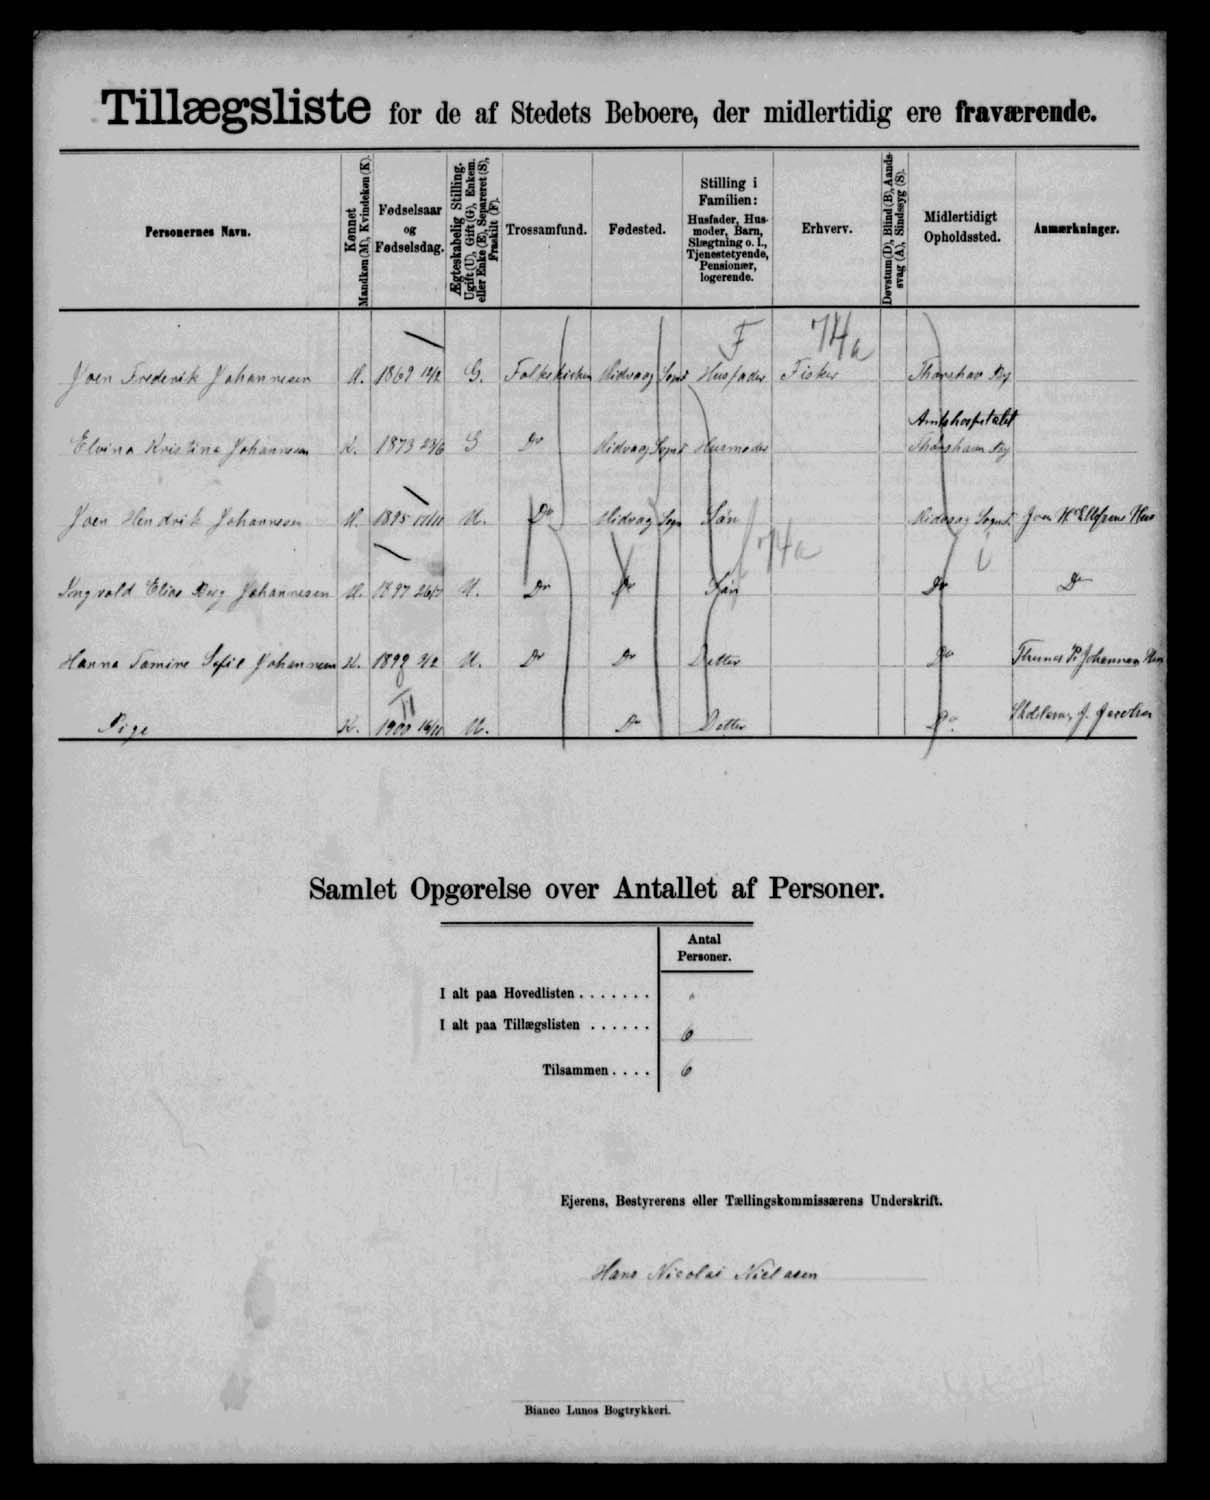 Tillægsliste for de af Stedets Beboere, der midlertidig ere fraværende.
Personernes Navn.
Kønnet
Mandkøn (M), Kvindekøn (K).
Fødselsaar
og
Fødselsdag.
Ægteskabelig Stilling.
Ugift (U), Gift (G), Enkem.
eller Enke (E), Separeret (S),
Fraskilt (F).
Trossamfund.
Fødested.
Stilling i
Familien:
Husfader, Hus-
moder, Barn,
Slægtning o. l.,
Tjenestetyende,
Pensionær,
logerende.
Erhverv.
Døvstum (D), Blind (B), Aands-
svag (A), Sindssyg (S).
Midlertidigt
Opholdssted.
Anmærkninger.
F 74a
Joen Frederik Johannesen M. 1869 12/2 G. Folkekirken Midvaag Sogn Husfader Fisker Thorshavn By
Amtshospitalet
Elvina Kristine Johannesen K. 1873 23/6 G Do Midvaag Sogn Husmoder Thorshavn By
Joen Hendrik Johannesen M. 1895 U. Do Midvaag Sogn Søn Midvaag Sogn Joen Hus
74a
Ingvold Elias Berg Johannesen M. 1897 U. Do Do Søn Do Do
Hanna Sofie Johannesen K. 1898 2/2 U. Do Do Datter Do Johannesen Hus
Pige K. 1900 U. Do Datter Do J. Jacobsen
Samlet Opgørelse over Antallet af Personer.
Antal
Personer.
I alt paa Hovedlisten . . . . . . . "
I alt paa Tillægslisten . . . . . . 6
Tilsammen . . . . 6
Ejerens, Bestyrerens eller Tællingskommissærens Underskrift.
Hans Nicolai Nielasen
Bianco Lunos Bogtrykkeri.